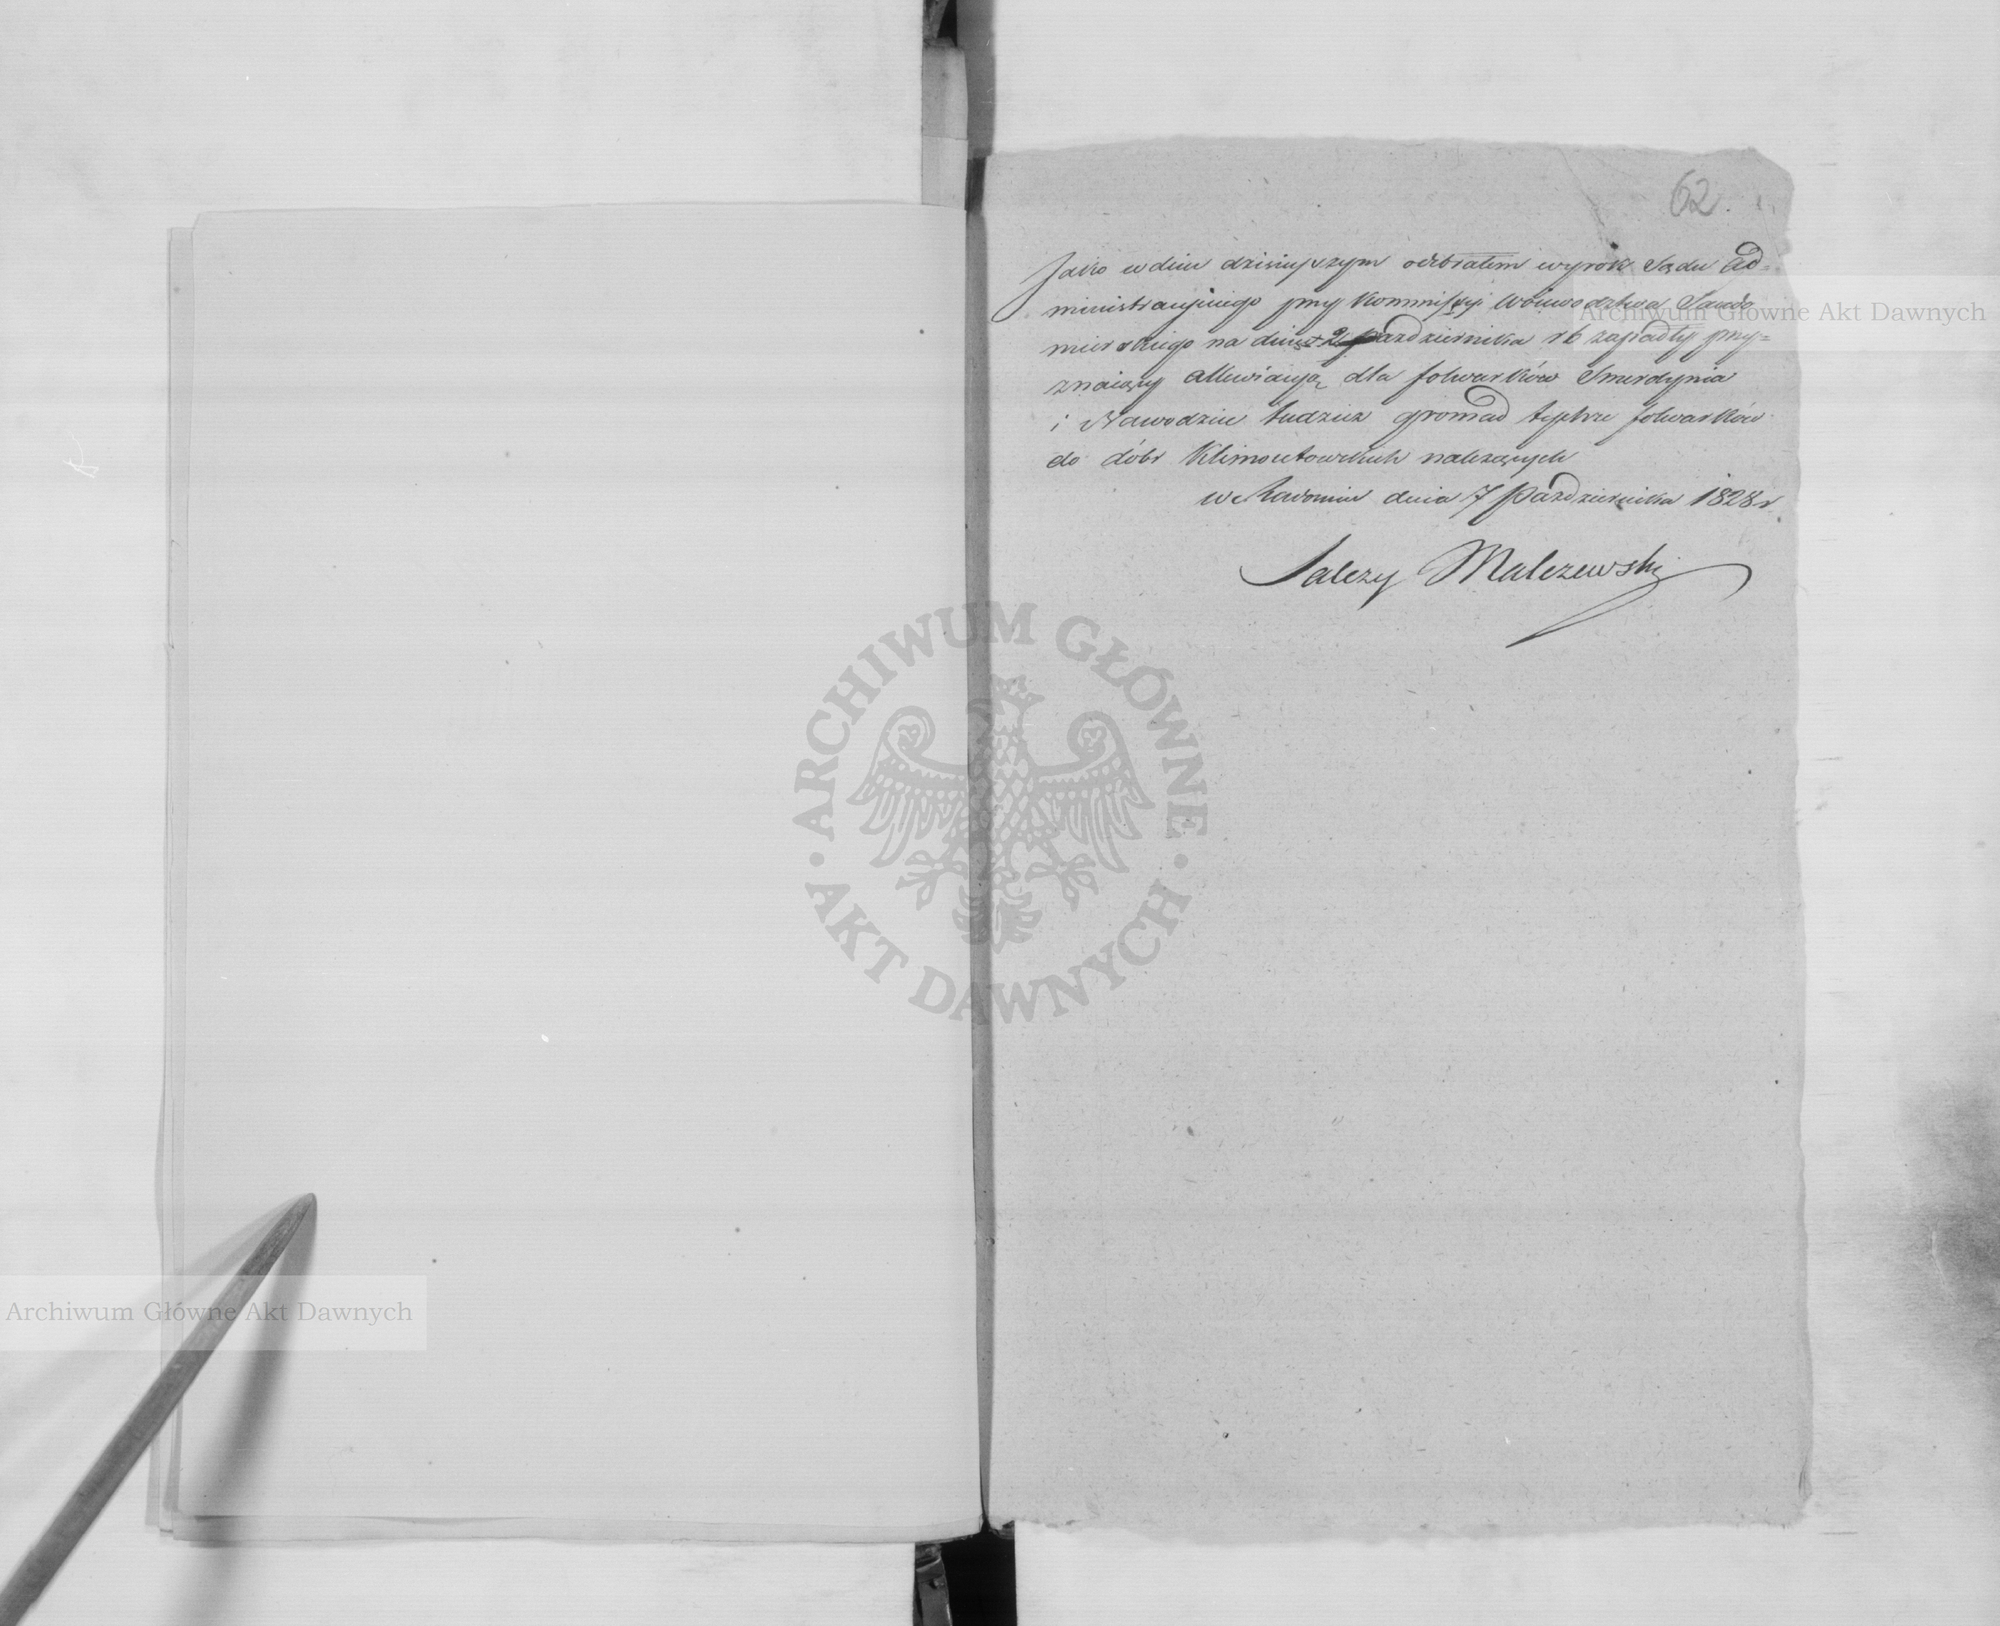 62.
Jako w dniu dzisiejszym odebrałem wyrok Sądu Ad=
ministracyjnego przy Kommissyi Woiewodztwa Sando
mierskiego na dniu 2 Pazdziernika r b zapadły przy=
znaiący alluwiacyą dla folwarków Smerdynia
i Nawodzie tudzież gromad tychże folwarków
do dóbr Klimontowskich należących
w Radomiu dnia 7 Pazdziernika 1828 r
Salezy Malczewski
Archiwum Główne Akt Dawnych
ARCHIWUM GŁÓWNE
AKT DAWNYCH
Archiwum Główne Akt Dawnych